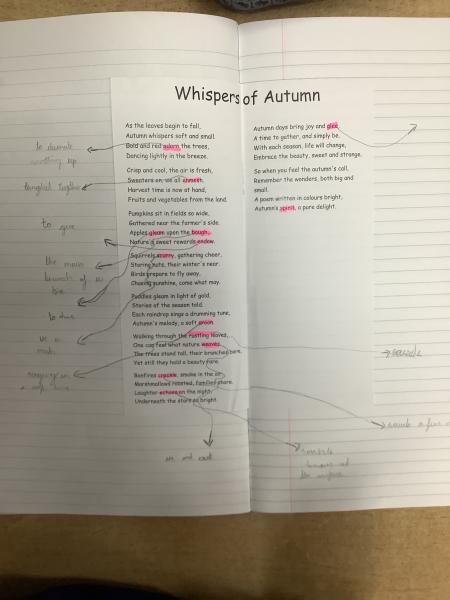 Whispers of Autumn
As the leaves begin to fall,
Autumn whispers soft and small.
Bold and red adorn the trees,
Dancing lightly in the breeze.
Crisp and cool, the air is fresh,
Sweaters on, we all enmesh.
Harvest time is now at hand,
Fruits and vegetables from the land.
Pumpkins sit in fields so wide,
Gathered near the farmer's side.
Apples gleam upon the bough,
Nature's sweet rewards endow.
Squirrels scurry, gathering cheer,
Storing nuts, their winter's near.
Birds prepare to fly away,
Chasing sunshine, come what may.
Puddles gleam in light of gold,
Stories of the season told.
Each raindrop sings a drumming tune,
Autumn's melody, a soft
Walking through the rustling leaves,
One can feel what nature weaves.
The trees stand tall, their branches bare,
Yet still they hold a beauty rare.
Bonfires crackle, smoke in the air,
Marshmallows roasted, families share.
Laughter echoes in the night,
Underneath the stars so bright.
Autumn days bring joy and glee,
A time to gather, and simply be.
With each season, life will change,
Embrace the beauty, sweet and strange.
So when you feel the autumn's call,
Remember the wonders, both big and
small.
A poem written in colours bright,
Autumn's spirit, a pure delight.
to
up
tangled together
to give
the main
to